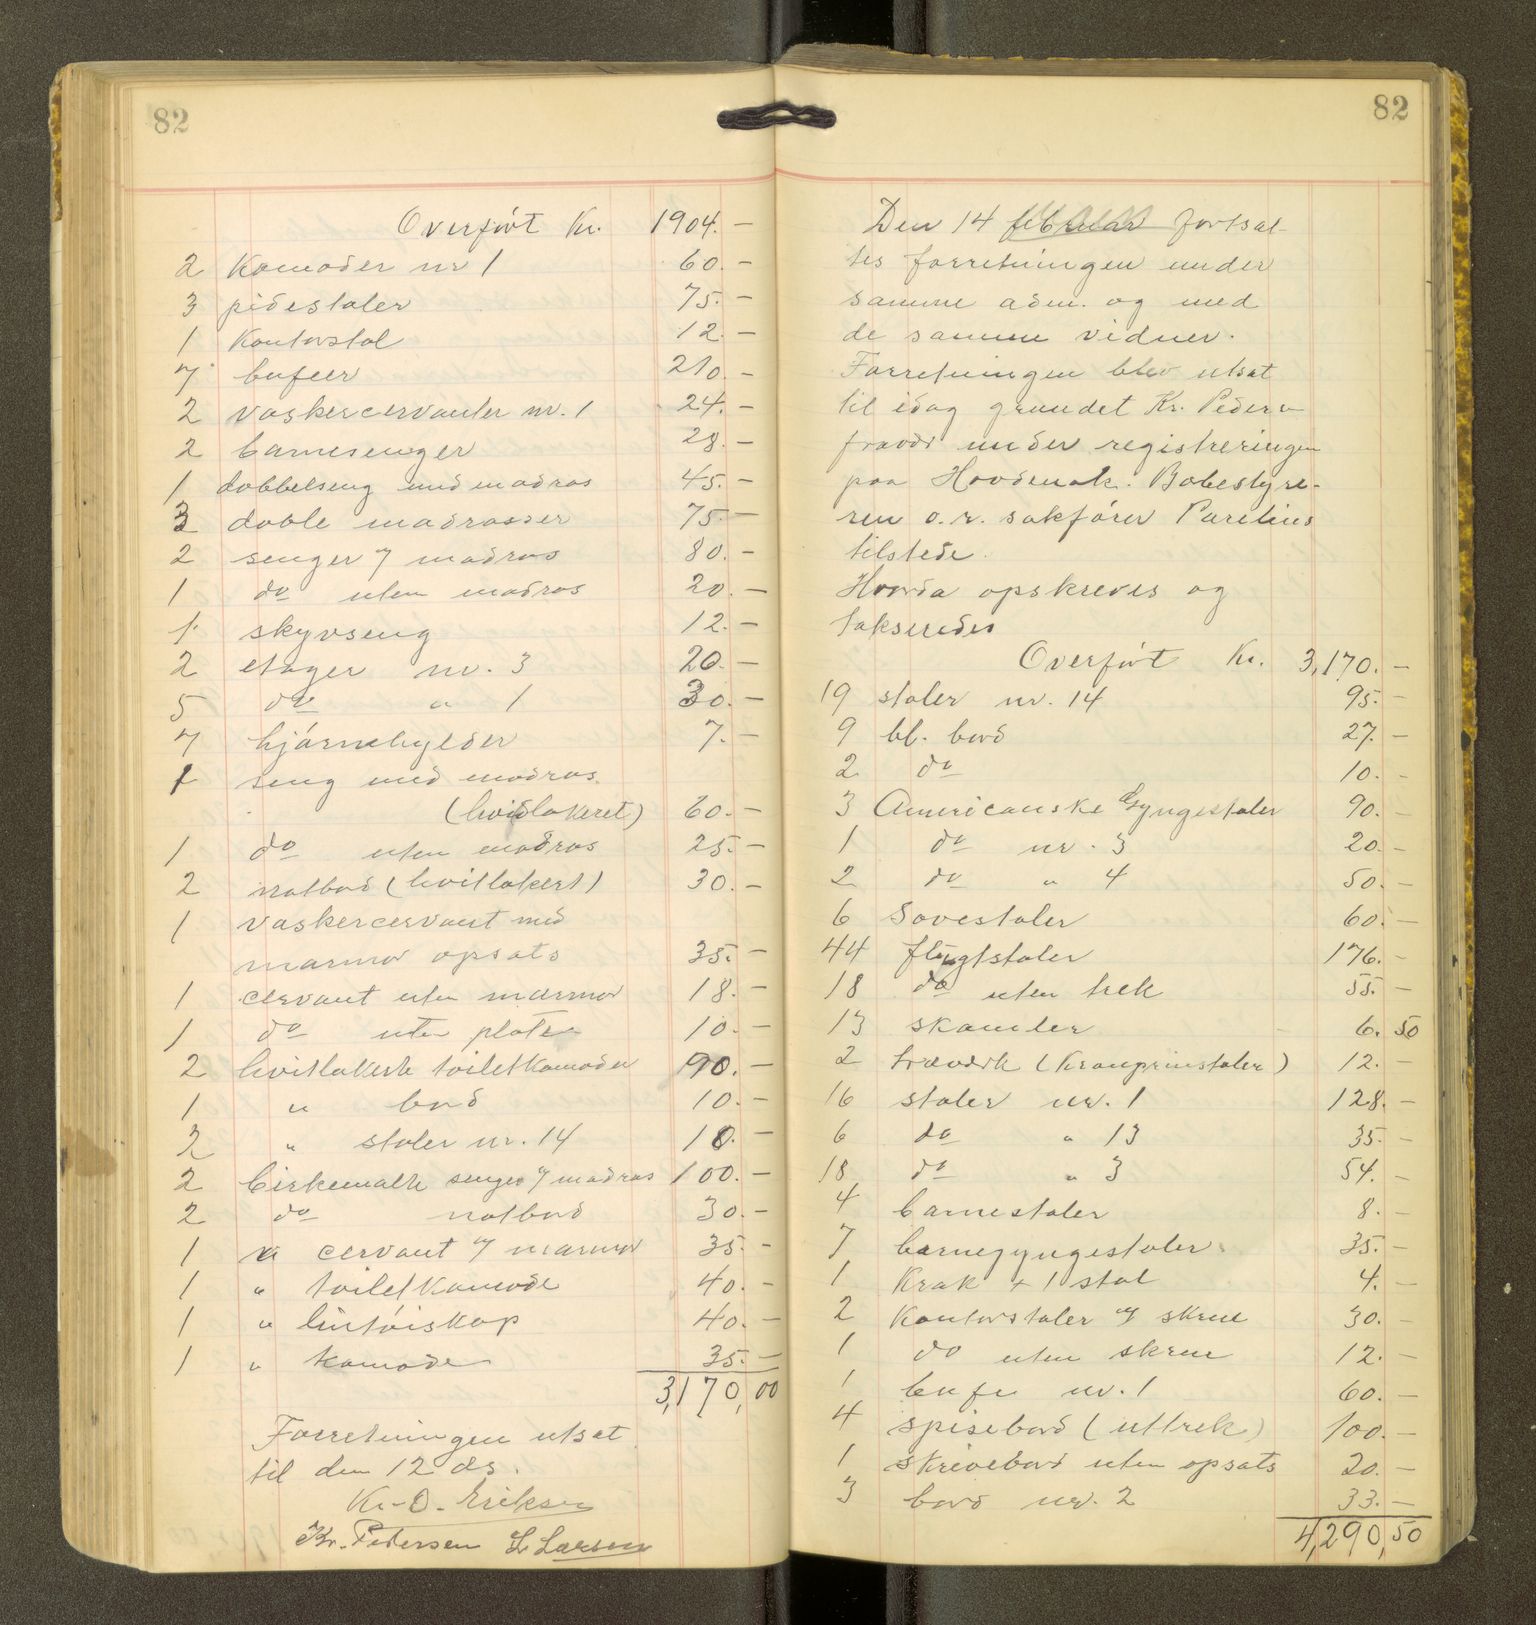 82
Overført Kr. 1904. —
2 Komoder nr 1 60. —
3 pidestaler 75. —
1 Kontorstol 12. —
7 bufeer 210. —
2 vaskercervanter nr. 1 24. —
2 barnesenger 28. —
1 dobbelseng med madras 45. —
3 doble madrasser 75. —
2 senger 7 madras 80. —
1 do uten madras 20. —
1 skyvseng 12. —
2 etager nr. 3 20. —
5 do " 1 30. —
7 hjørnehylder 7. —
1 seng med madras
(hvidlakeret) 60. —
1 do uten madras 25. —
2 natbord (hvitlakert) 30. —
1 vaskercervant med
marmor opsats 35. —
1 cervant uten marmor 18. —
1 do uten plate 10. —
2 hvitlakerte toiletkomoder 90. —
1 " bord 10. —
2 " stoler nr. 14 10. —
2 birkemalte senger 7 madras 100. —
2 do natbord 30. —
1 " cervant 7 marmor 35. —
1 " toiletkomode 40. —
1 " lintøiskap 40. —
1 " komode 35. —
3,170,00
Forretningen utsat
til den 12 ds.
Kr. O. Eriksen
Kr. Petersen L Larsen
82
Den 14 februar fortsat-
tes forretningen under
samme adm. og med
de samme vidner.
Forretningen blev utsat
til idag grundet Kr. Peders
fravær under registreringen
paa Hovdenak. Bobestyre-
ren o.r. sakfører Parelius
tilstede.
Hvorda opskreves og
takseredes
Overført Kr. 3,170. —
19 stoler nr. 14 95. —
9 bl. bord 27. —
2 do 10. —
3 Americanske Gyngestoler 90. —
1 do nr. 3 20. —
2 do " 4 50. —
6 Sovestoler 60. —
44 flugtstoler 176. —
18 do uten trek 55. —
13 skamler 6. 50
2 træværk (Kronprinstoler) 12. —
16 stoler nr. 1 128. —
6 do " 13 35. —
18 do " 3 54. —
4 barnestoler 8. —
7 barnegyngestoler 35. —
1 Krak + 1 stol 4. —
2 Kontorstoler 7 skrue 30. —
1 do uten skrue 12. —
1 bufe nr. 1 60. —
4 spisebord (uttrek) 100. —
1 skrivebord uten opsats 20. —
3 bord nr. 2 33. —
4,290,50